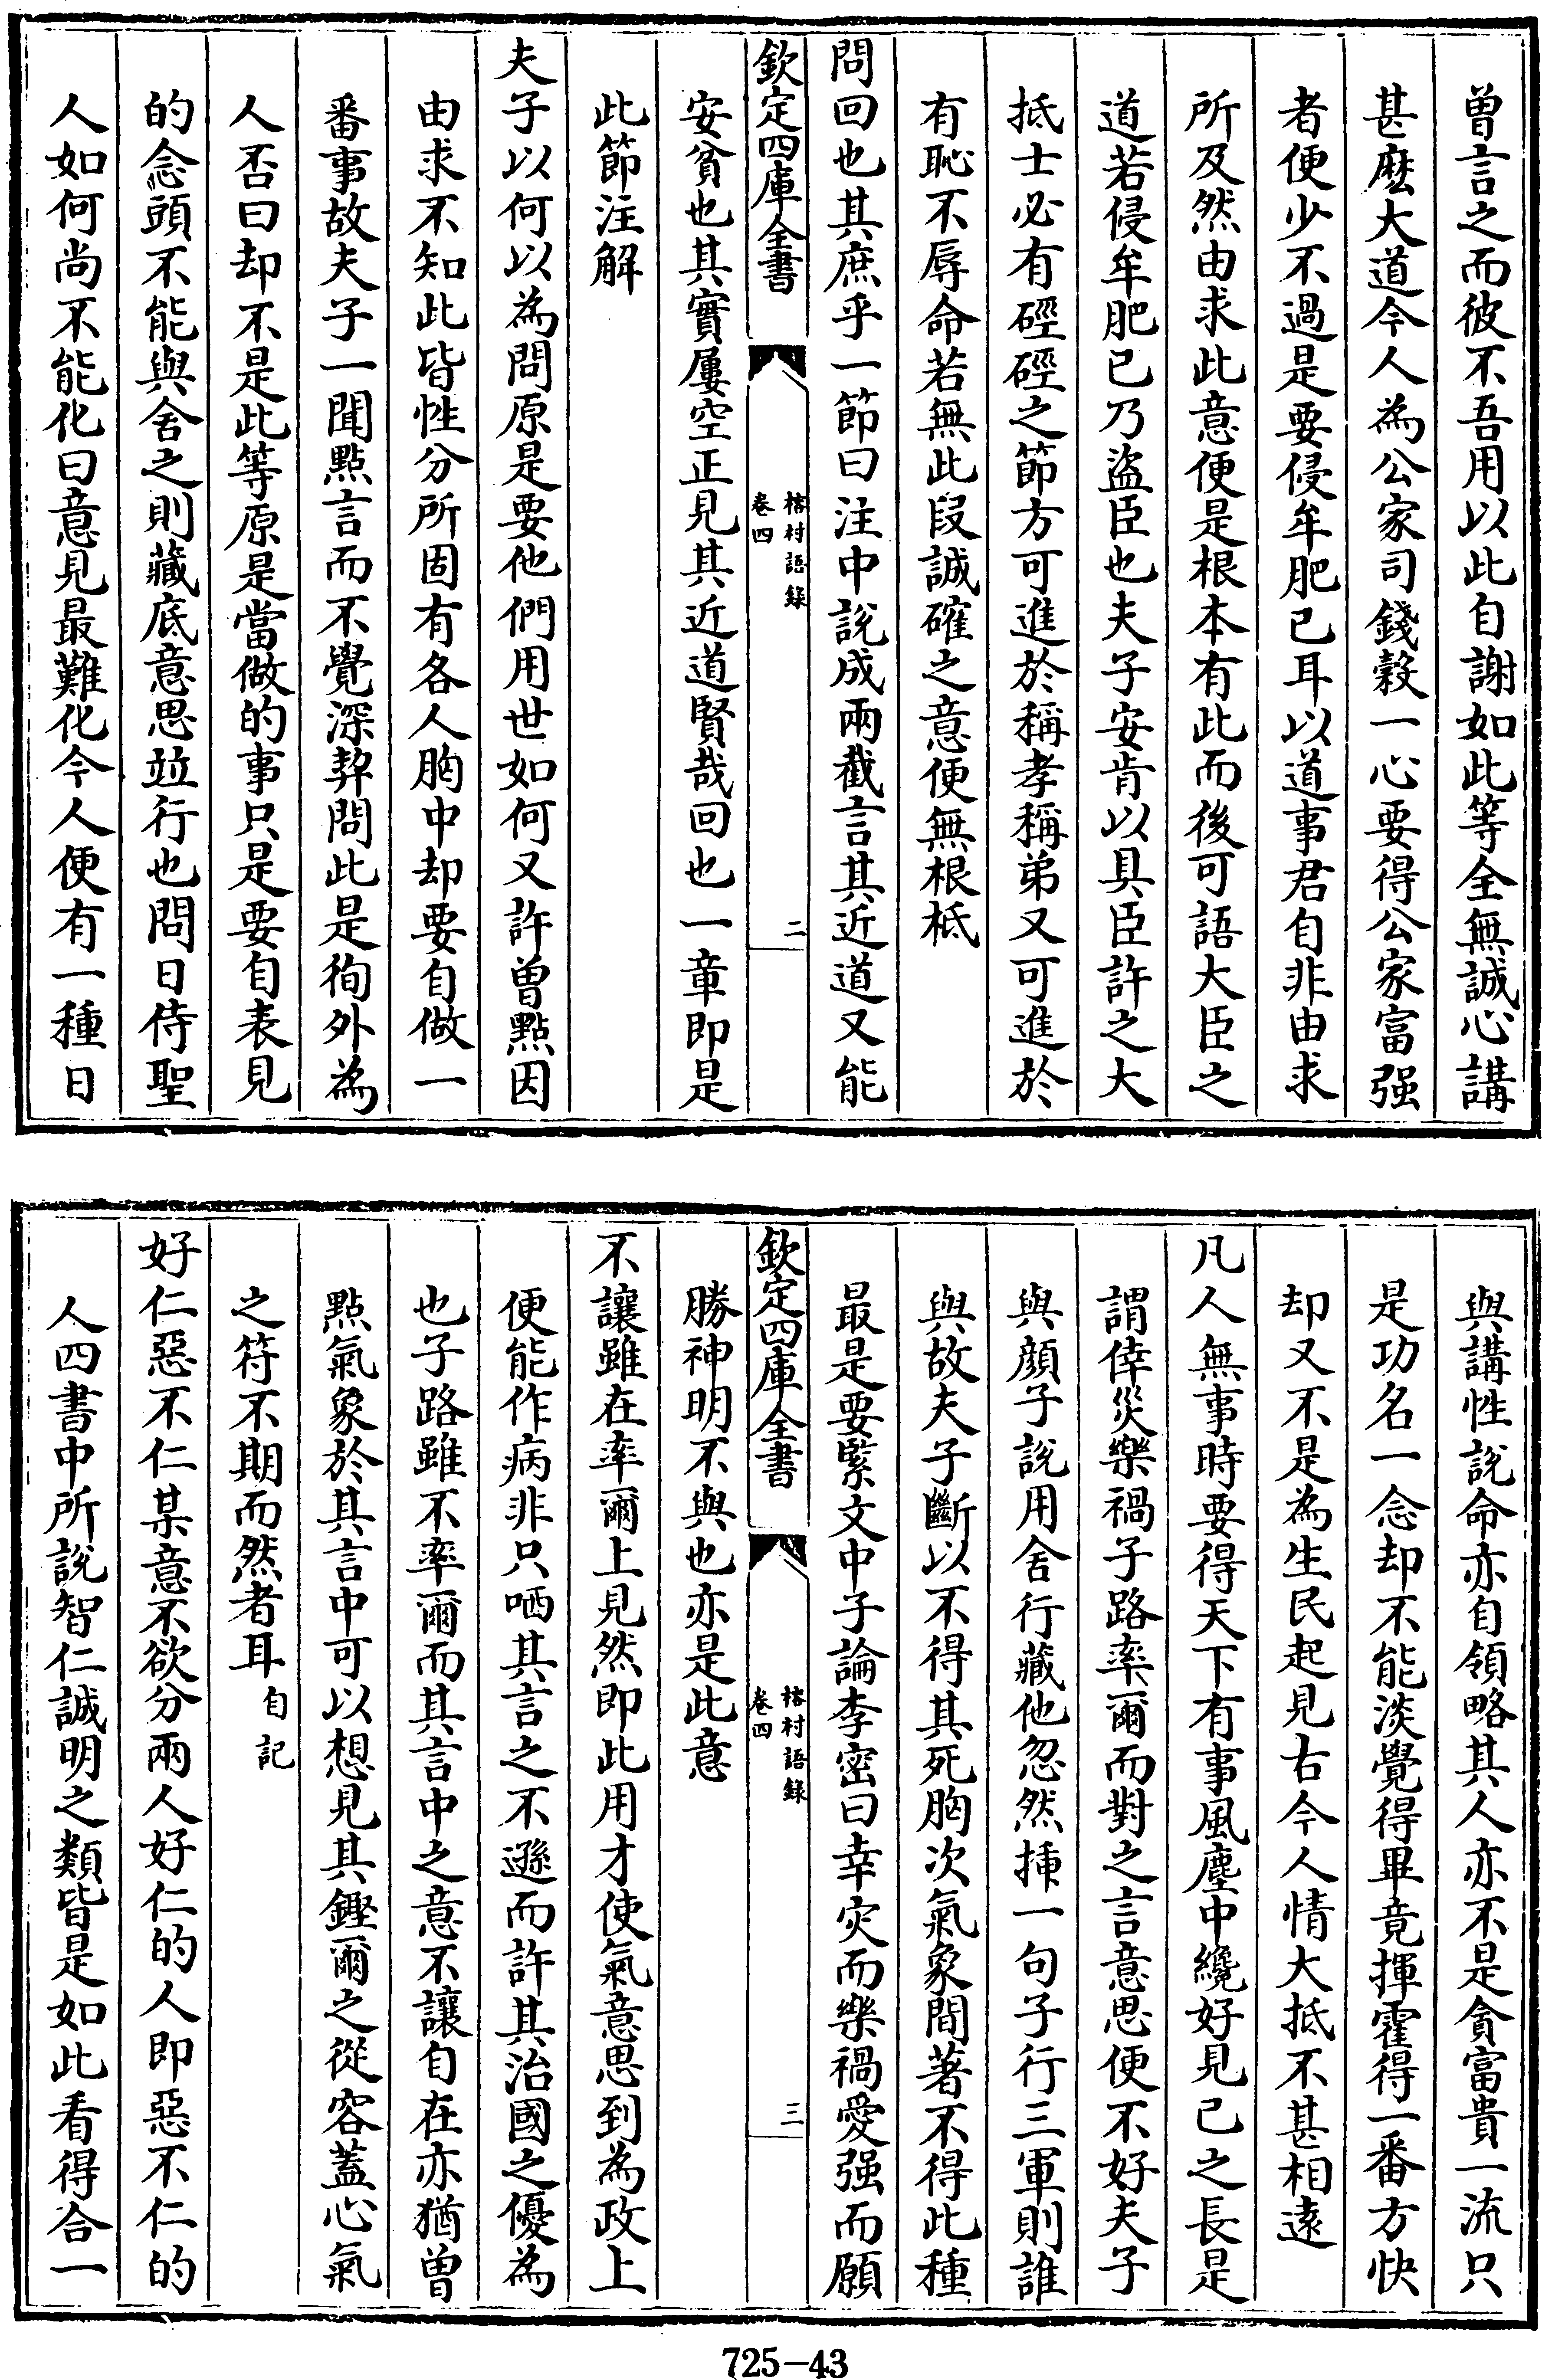 曽言之而彼不吾用以此自謝如此等全無誠心講
甚麽大道今人為公家司錢穀一心要得公家富强
者便少不過是要侵牟肥已耳以道事君自非由求
所及然由求此意便是根本有此而後可語大臣之
道若侵牟肥已乃盜臣也夫子安肯以具臣許之大
抵士必有硜硜之節方可進於稱孝稱弟又可進於
有恥不辱命若無此段誠確之意便無根柢
問回也其庶乎一節曰注中説成兩截言其近道又能
欽定四庫全書
榕村語録
卷四
二
安貧也其實屢空正見其近道賢哉回也一章即是
此節注解
夫子以何以為問原是要他們用世如何又許曽點因
由求不知此皆性分所固有各人胸中却要自做一
番事故夫子一聞點言而不覺深契問此是徇外為
人否曰却不是此等原是當做的事只是要自表見
的念頭不能與舍之則藏底意思並行也問日侍聖
人如何尚不能化曰意見最難化今人便有一種日
與講性説命亦自領略其人亦不是貪富貴一流只
是功名一念却不能淡覺得畢竟揮霍得一番方快
却又不是為生民起見古今人情大抵不甚相逺
凡人無事時要得天下有事風塵中纔好見已之長是
謂倖災樂禍子路率爾而對之言意思便不好夫子
與顔子説用舍行藏他忽然挿一句子行三軍則誰
與故夫子斷以不得其死胸次氣象間著不得此種
最是要緊文中子論李密曰幸灾而樂禍愛强而願
欽定四庫全書
榕村語録
卷四
三
勝神明不與也亦是此意
不讓雖在率爾上見然即此用才使氣意思到為政上
便能作病非只哂其言之不遜而許其治國之優為
也子路雖不率爾而其言中之意不讓自在亦猶曽
點氣象於其言中可以想見其鏗爾之從容葢心氣
之符不期而然者耳自記
好仁惡不仁某意不欲分兩人好仁的人即惡不仁的
人四書中所説智仁誠明之類皆是如此看得合一
725-43